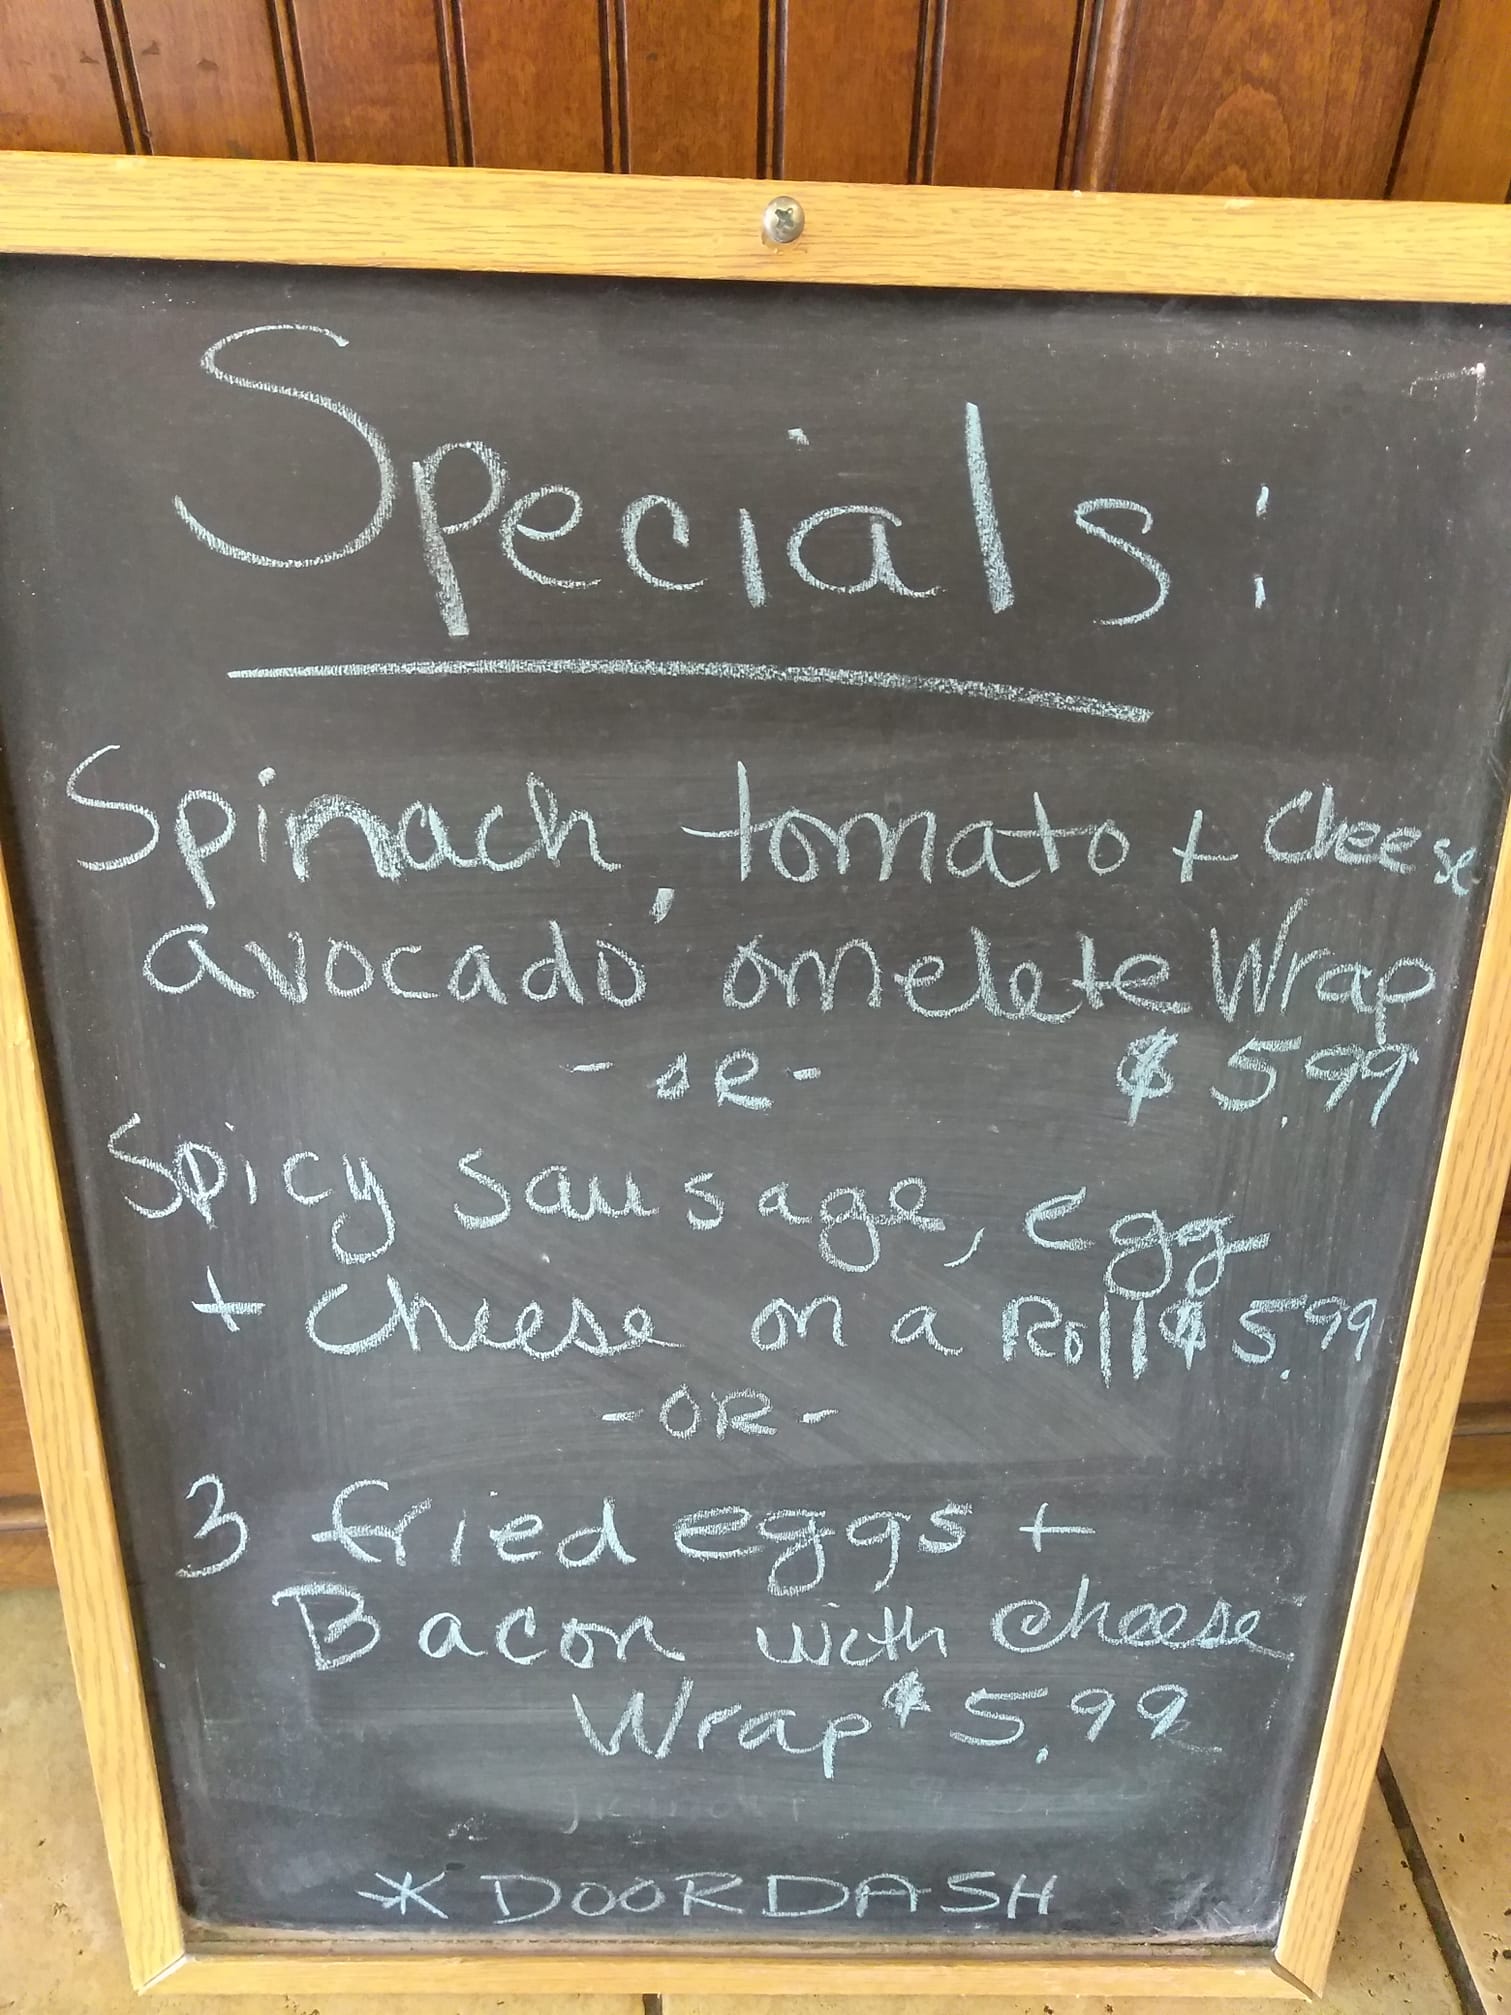 Specials:
Spinach, tomato + Cheese
avocado omelete Wrap
- OR - $5.99
Spicy sausage, egg
+ Cheese on a Roll $5.99
- OR -
3 fried eggs +
Bacon with cheese
Wrap $5.99
* DOORDASH